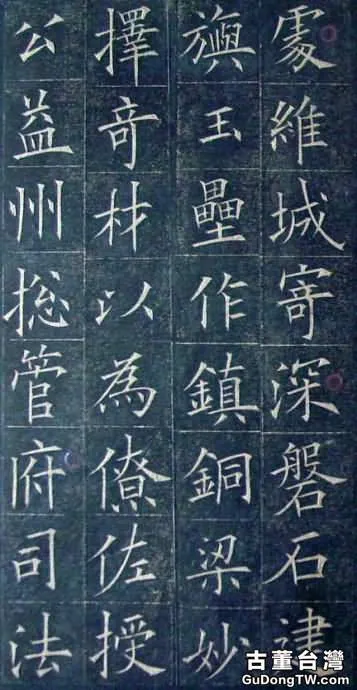 處維城寄深磐石建
旟玉壘作鎮銅梁妙
擇竒材以為僚佐授
公益州捴管府司法
古董台灣
GuDongTW.com